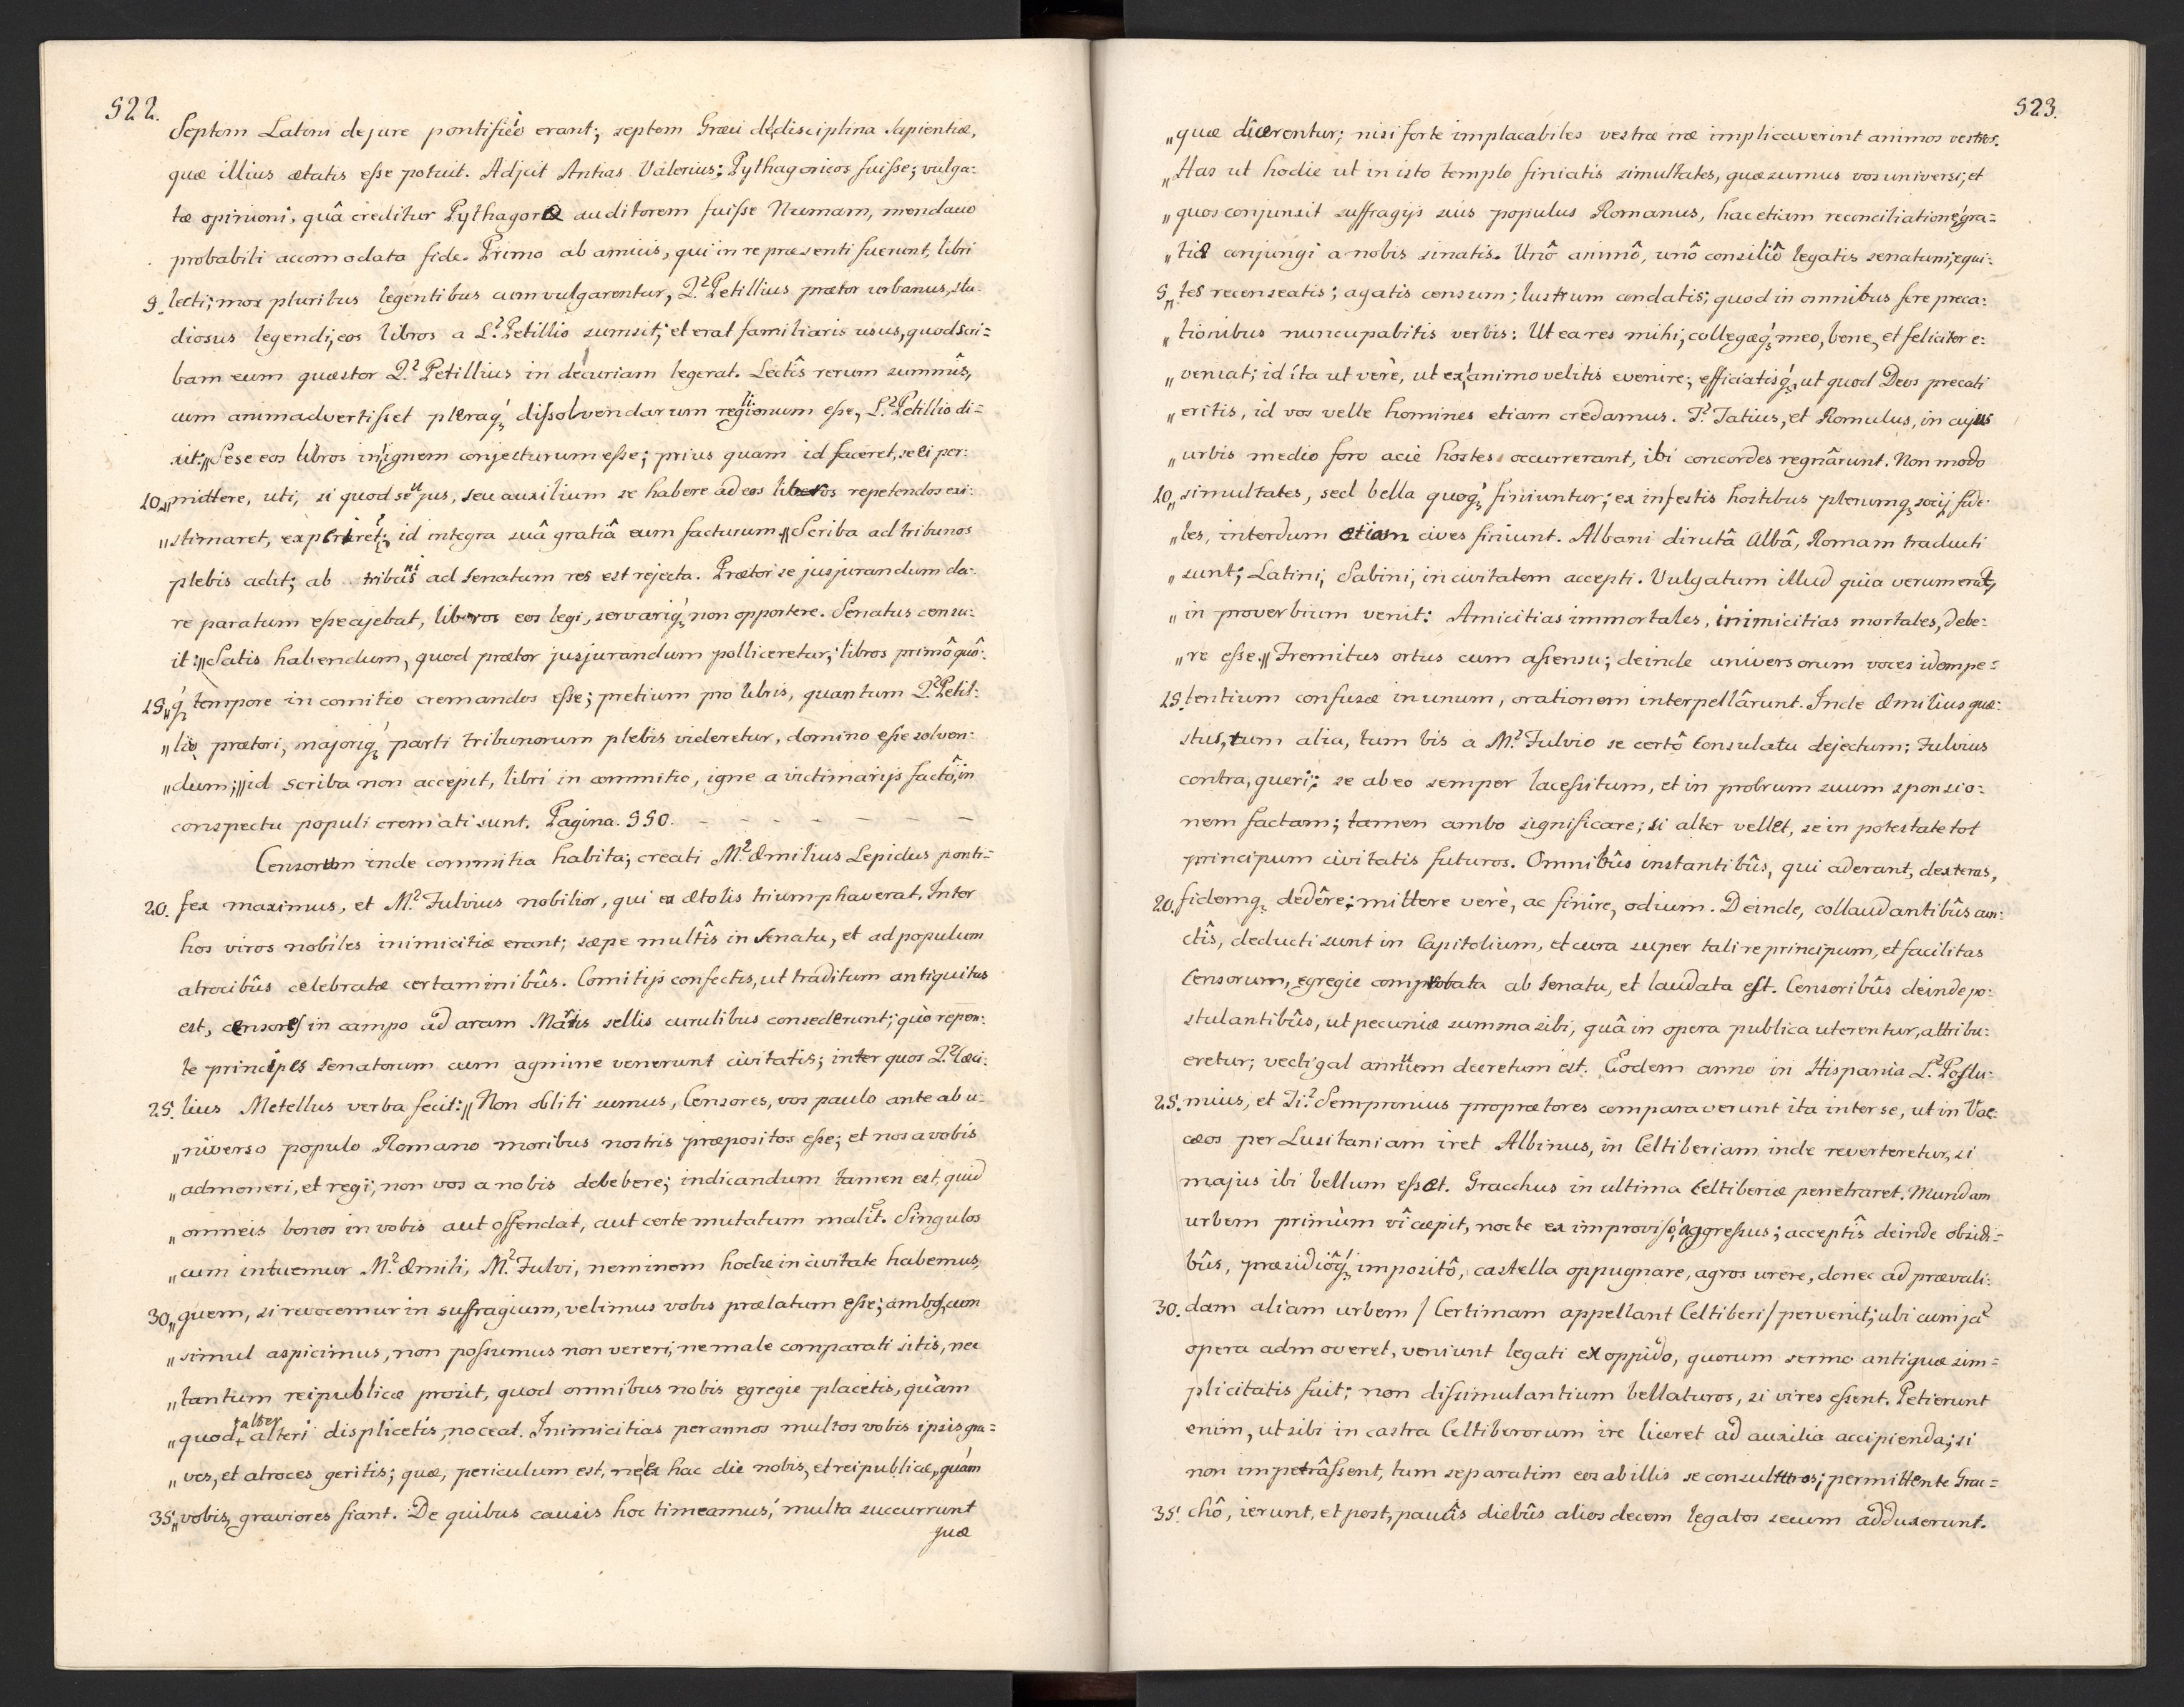 522.
Septem Latini de jure pontificio erant; septem Græci de disciplina sapientiæ,
quæ illius ætatis esse potuit. Adjicit Antias Valerius; Pythagoricos fuisse; vulga-
tæ opinioni, quâ creditur Pythagoræ auditorem fuisse Numam, mendacio
probabili accomodata fide. Primo ab amicis, qui in re præsenti fuerunt, libri
5. lecti; mox pluribus legentibus cum vulgarentur, Q. Petillius prætor urbanus, stu-
diosus legendi, eos libros a L. Petillio sumsit; et erat familiaris usus, quod scri-
bam eum quæstor Q. Petillius in decuriam legerat. Lectîs rerum summîs,
cum animadvertisset pleraq́; dissolvendarum religionum esse, L. Petillio di-
xit: „Sese eos libros in ignem conjecturum esse; prius quam id faceret, se ei per-
10. „mittere, uti, si quod seu jus, seu auxilium se habere ad eos libros repetendos exi-
„stimaret, experiret; id integra suâ gratiâ eum facturum.„ Scriba ad tribunos
plebis adit; ab tribunis ad senatum res est rejecta. Prætor se jusjurandum da-
re paratum esse ajebat, libros eos legi, servariq́; non opportere. Senatus censu-
it: „Satis habendum, quod prætor jusjurandum polliceretur; libros primô quô-
15. „q́; tempore in comitio cremandos esse; pretium pro libris, quantum Q. Petil-
„lio prætori, majoriq́; parti tribunorum plebis videretur, domino esse solven-
„dum;„ id scriba non accepit, libri in commitio, igne a victimarijs factô, in
conspectu populi cremati sunt. Pagina. 550. – – – – – – –
Censorum inde commitia habita; creati M. Æmilius Lepidus ponti-
20. fex maximus, et M. Fulvius nobilior, qui ex ætolis triumphaverat. Inter
hos viros nobiles inimicitiæ erant; sæpe multîs in senatu, et ad populum
atrocibûs celebratæ certaminibûs. Comitijs confectis, ut traditum antiquitus
est, censores in campo ad aram Mârtis sellis curulibus consederunt; quo repen-
te principes senatorum cum agmine venerunt civitatis; inter quos Q. Cæci-
25. lius Metellus verba fecit: „Non obliti sumus, Censores, vos paulo ante ab u-
„niverso populo Romano moribus nostris præpositos esse; et nos a vobis
„admoneri, et regi; non vos a nobis debebere; indicandum tamen est, quid
„omneis bonos in vobis aut offendat, aut certe mutatum malit. Singulos
„cum intuemur M. Æmili, M. Fulvi, neminem hodie in civitate habemus,
30. „quem, si revocemur in suffragium, velimus vobis prælatum esse; ambos, cum
„simul aspicimus, non possumus non vereri, ne male comparati sitis, nec
„tantum reipublicæ prosit, quod omnibus nobis egregie placetis, quàm
„quod alter alteri displicetis, noceat. Inimicitias per annos multos vobis ipsis gra-
„ves, et atroces geritis; quæ, periculum est, ne ex hac die nobis, et reipublicæ, quàm
35. „vobis, graviores fiant. De quibus causis hoc timeamus, multa succurrunt
quæ
523.
„quæ dicerentur; nisi forte implacabiles vestræ iræ implicaverint animos vestros.
„Has ut hodie ut in isto templo finiatis simultates, quæsumus vos universi, et
„quos conjunxit suffragijs suis populus Romanus, hac etiam reconciliatione gra-
„tiæ conjungi a nobis sinatis. Unô animô, unô consiliô legatis senatum; equi-
5. „tes recenseatis; agatis censum; lustrum condatis; quod in omnibus fere preca-
„tionibus nuncupabitis verbis: Ut ea res mihi, collegæq́; meo, bene, et feliciter e-
„veniat; id ita ut verè, ut ex animo velitis evenire; efficiatisq́;, ut quod Deos precati
„eritis, id vos velle homines etiam credamus. T. Tatius, et Romulus, in cujus
„urbis medio foro acie hostes occurrerant, ibi concordes regnârunt. Non modo
10. „simultates, sed bella quoq́; finiuntur; ex infestis hostibus plerumq; socij fide-
„les, interdum etiam cives finiunt. Albani dirutâ Albâ, Romam traducti
„sunt; Latini, Sabini, in civitatem accepti. Vulgatum illud quia verum erat,
„in proverbium venit: Amicitias immortales, inimicitias mortales, debe-
„re esse.„ Fremitus ortus cum assensu; deinde universorum voces idem pe-
15. tentium confusæ in unum, orationem interpellârunt. Inde Æmilius que-
stus, tum alia, tum bis a M. Fulvio se certô Consulatu dejectum; Fulvius
contra, queri; se ab eo semper lacessitum, et in probrum suum sponsio-
nem factam; tamen ambo significare; si alter vellet, se in potestate tot
principum civitatis futuros. Omnibûs instantibûs, qui aderant, dexteras,
20. fidemq; dedêre; mittere verè, ac finire, odium. Deinde, collaudantibûs cun-
ctîs, deducti sunt in Capitolium, et cura super tali re principum, et facilitas
Censorum, egregie comprobata ab senatu, et laudata est. Censoribûs deinde po-
stulantibûs, ut pecuniæ summa sibi, quâ in opera publica uterentur, attribu-
eretur; vectigal annuum decretum est. Eodem anno in Hispania L. Postu-
25. mius, et Ti. Sempronius proprætores comparaverunt ita inter se, ut in Vac-
cæos per Lusitaniam iret Albinus, in Celtiberiam inde reverteretur, si
majus ibi bellum esset. Gracchus in ultima Celtiberiæ penetraret. Mundam
urbem primùm vî cæpit, nocte ex improviso aggressus; acceptîs deinde obsidi-
bûs, præsidiôq́; impositô, castella oppugnare, agros urere, donec ad prævali-
30. dam aliam urbem / Certimam appellant Celtiberi / pervenit; ubi cum jã
opera admoveret, veniunt legati ex oppido, quorum sermo antiquæ sim-
plicitatis fuit; non dissimulantium bellaturos, si vires essent. Petierunt
enim, ut sibi in castra Celtiberorum ire liceret ad auxilia accipienda; si
non impetrâssent, tum separatim eos ab illis se consulturos; permittente Grac-
35. chô, ierunt, et post, paucîs diebûs alios decem legatos secum adduxerunt.